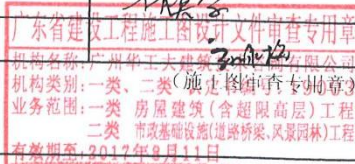 广东省建设工程施工图设计文件审查专用章
机构名称:广州华工大建筑 有限公司
机构类别:一类、二类
(施工图审查专用章)
业务范围:一类 房屋建筑(含超限高层)工程
二类 市政基础设施(道路桥梁、风景园林)工程
有效期至:2017年8月11日